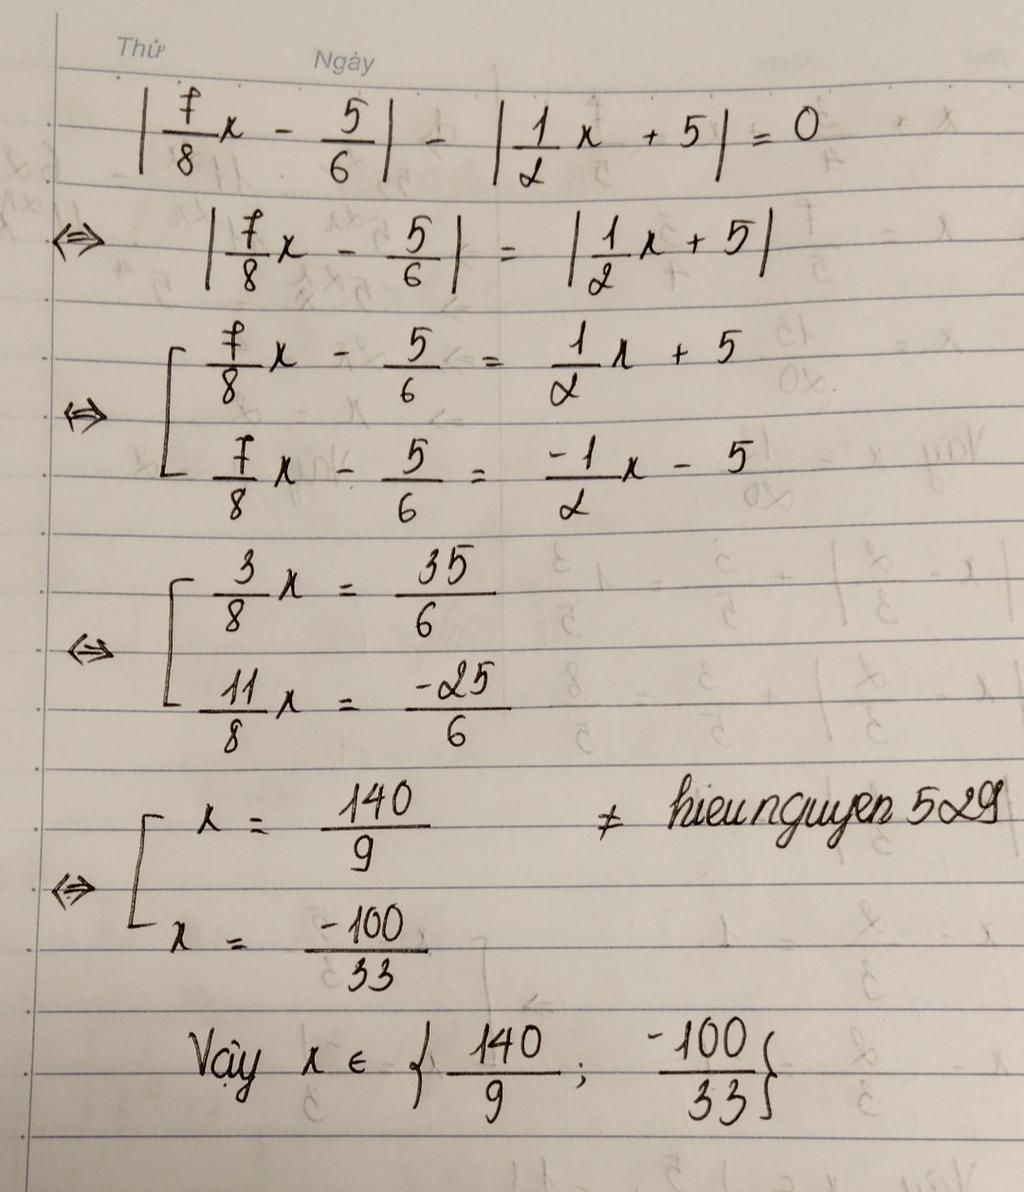 Thứ Ngày
|7/8 x - 5/6| - |1/2 x + 5| = 0
⇔ |7/8 x - 5/6| = |1/2 x + 5|
⇔ [ 7/8 x - 5/6 = 1/2 x + 5
7/8 x - 5/6 = -1/2 x - 5
⇔ [ 3/8 x = 35/6
11/8 x = -25/6
⇔ [ x = 140/9 ≠ hieunguyen529
x = -100/33
Vậy x ∈ {140/9 ; -100/33}